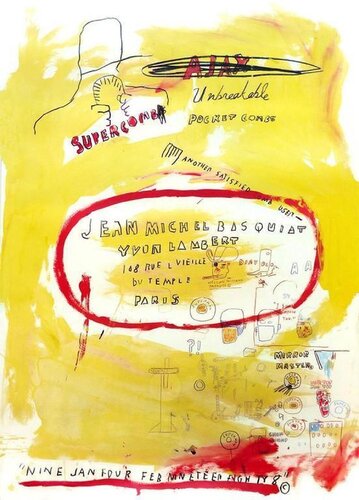 AJAX
Unbreakable
POCKET COMBS
SUPERCOMB
ANOTHER SATISFIED COMB USER—
JEAN MICHEL BASQUIAT
YVON LAMBERT
108 RUE VIEILLE
DU TEMPLE
PARIS
?!
A
MIRROR
MASTER
"NINE JAN FOUR FEB NINETEEN EIGHTY 8"
©